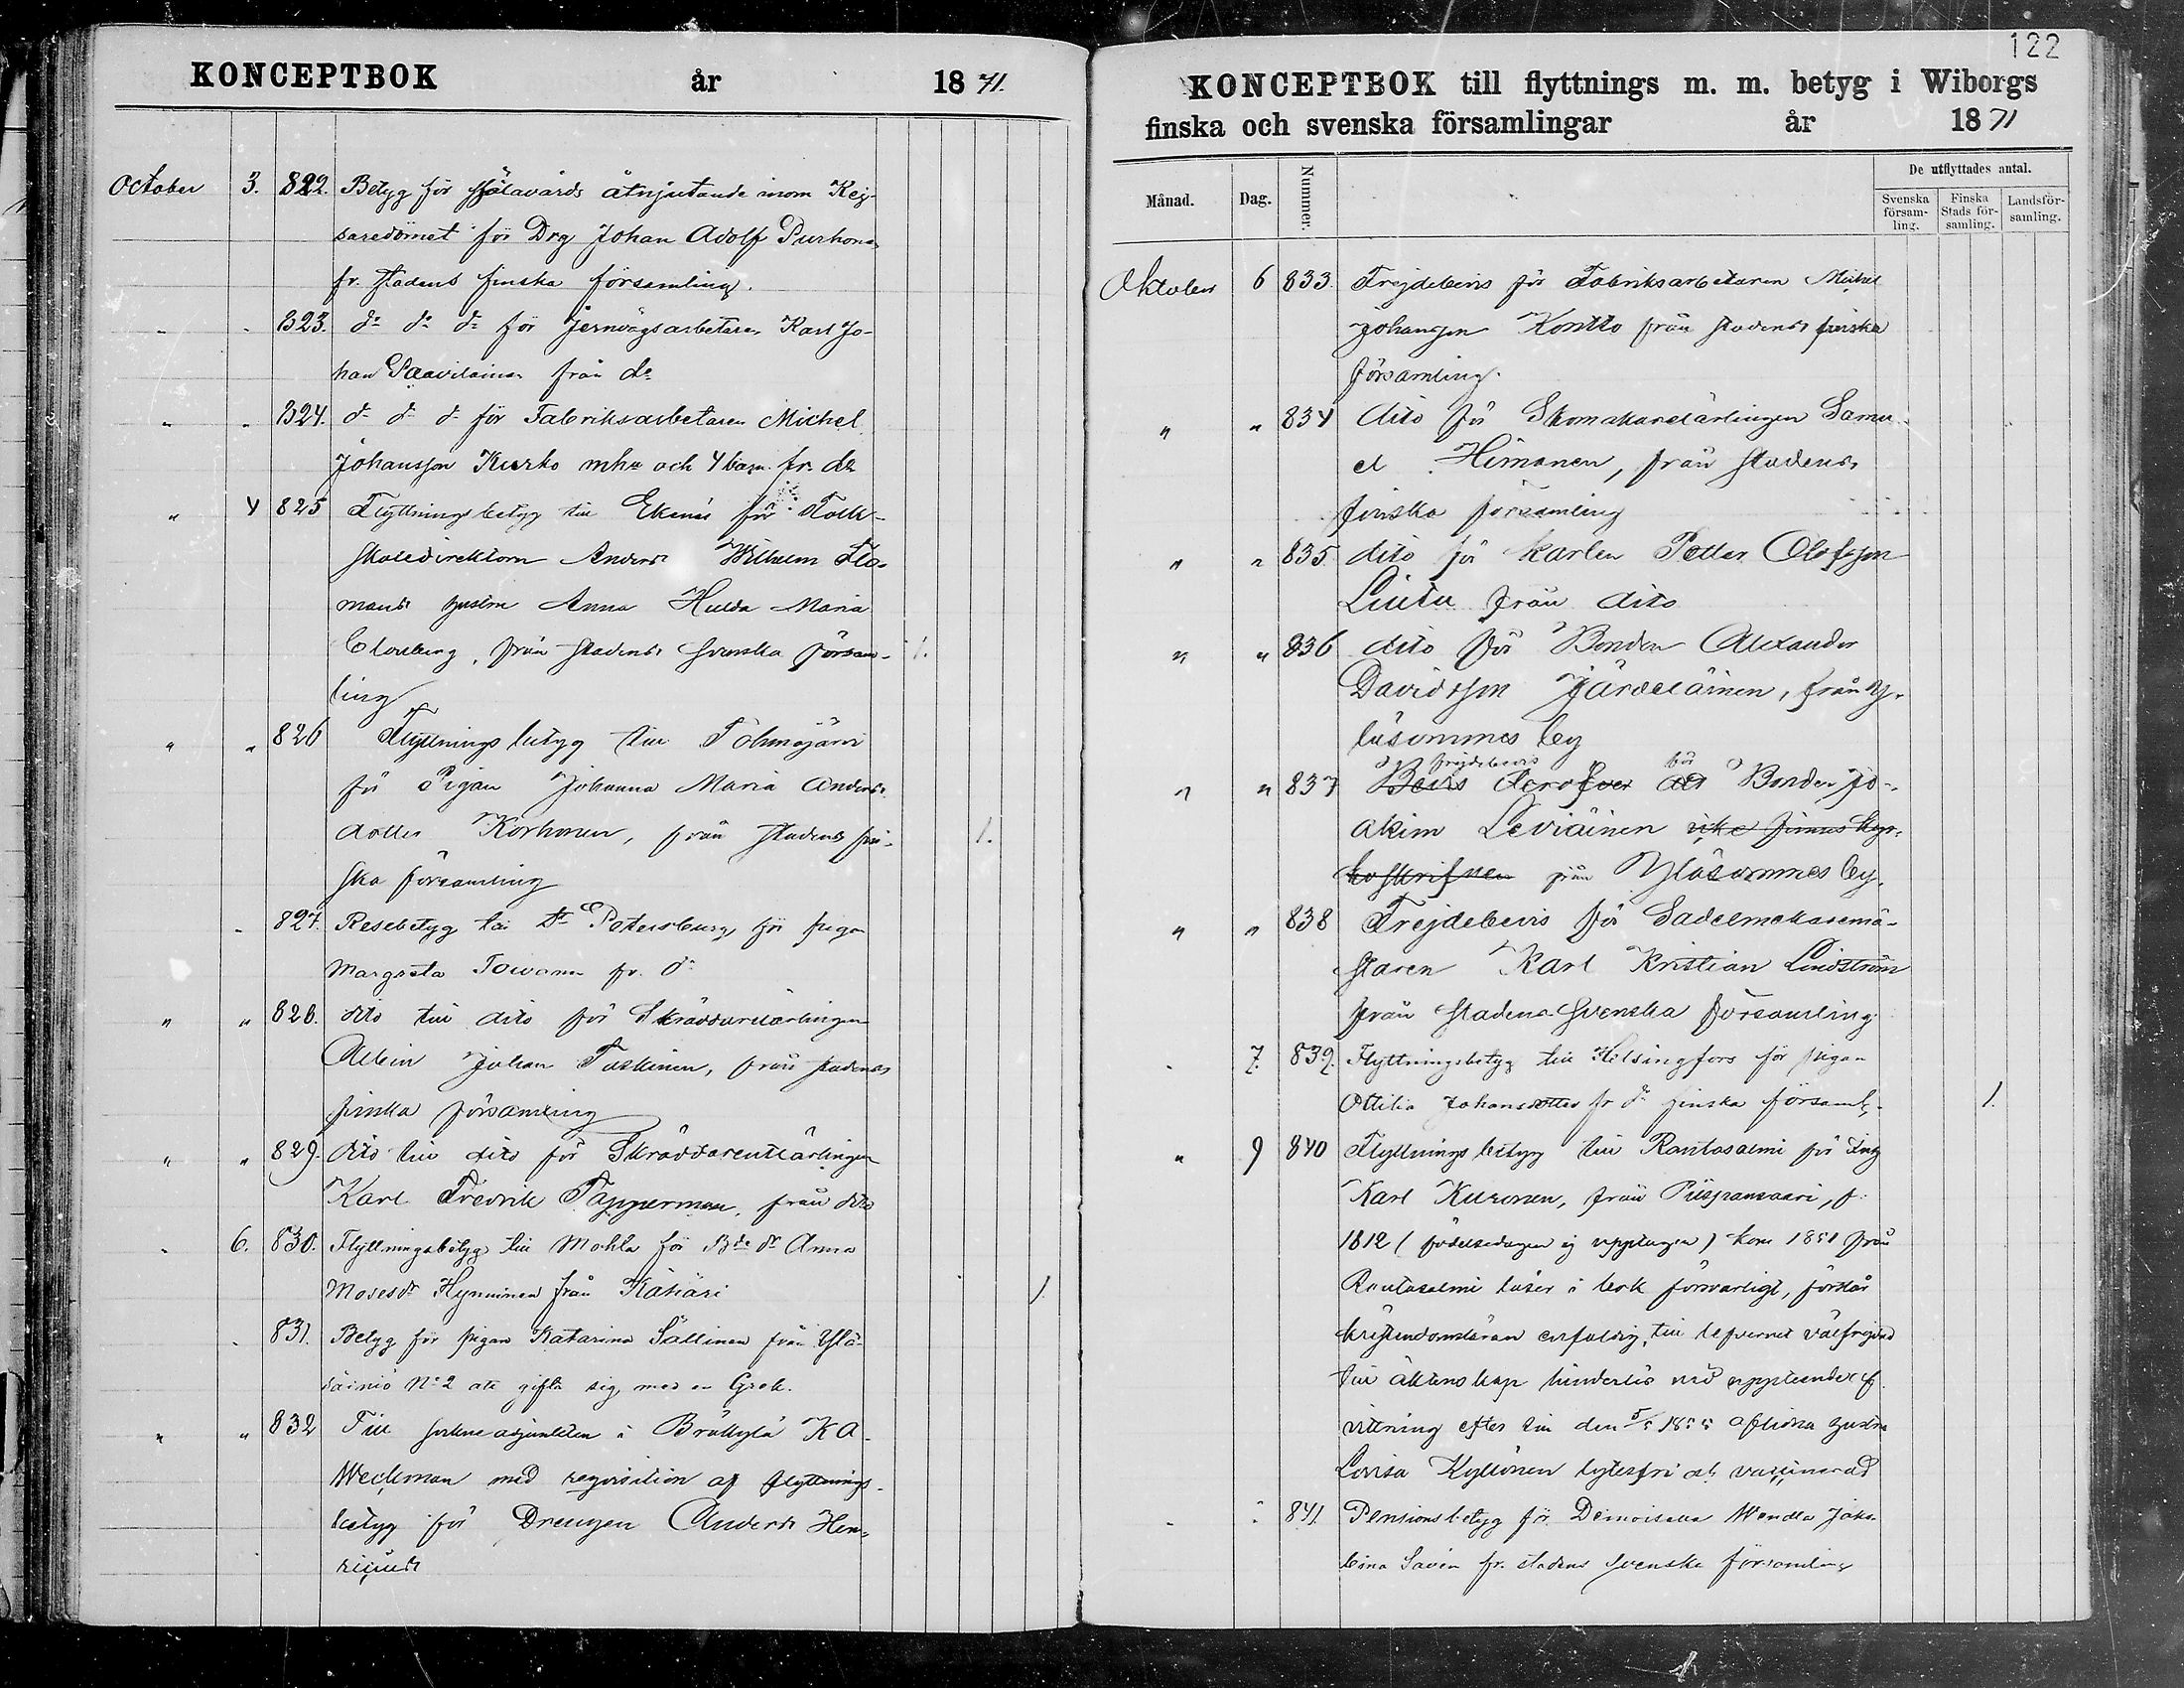 KONCEPTBOK år 1871.
October 3. 822. Betyg för själavårds åtnjutande inom Kej-
saredömet för Drg Johan Adolf Purhonen
fr. stadens finska församling.
" " 823. do do do för Jernvägsarbetaren Karl Jo-
han Paavilainen från do
" " 824. do do do för Fabriksarbetaren Michel
Johansson Kurko mhu och 4 barn fr. do
" 4 825 Flyttningsbetyg till Ekenäs för Folk-
skoledirektorn Anders Wilhelm Flo-
mans hustru Anna Hulda Maria
från stadens Svenska försam- 1.
ling
" " 826 Flyttningsbetyg till Tohmajärvi
för Pigan Johanna Maria Anders-
dotter Korhonen, från stadens fin- 1.
ska församling
" 827. Resebetyg till St Petersburg för pigan
Margreta Toivanen fr. do
" " 828. dito till dito för Skräddarelärlingen
Albin Johan Taskinen, från stadens
finska församling
" " 829. dito till dito för Skräddarentlärlingen
Karl Fredrik Tapperman, från dito
" 6. 830. Flyttningsbetyg till Mohla för Bde dr Anna
Mosesdr Hynninen från Kähäri 1
" 831. Betyg för pigan Katarina Sallinen från Ylä-
säiniö No 2 att gifta sig med en Grek.
" " 832 Till sockneadjunkten i Bräkylä K A
Weckman med requisition af flyttnings-
betyg för Drengen Anders Hen-
122
KONCEPTBOK till flyttnings m. m. betyg i Wiborgs
finska och svenska församlingar år 1871
Månad. Dag. Nummer. De utflyttades antal.
Svenska försam-ling. Finska Stads för-samling. Landsför-samling.
Oktober 6 833. Frejdebevis för Fabriksarbetaren Michel
Johansson Kontto från stadens finska
församling.
" " 834 dito för Skomakarelärlingen Samu-
el Himanen, från stadens
finska församling
" " 835. dito för karlen Petter Olofsson
Liuta från dito
" " 836 dito för Bonden Alexander
Davidsson Järveläinen, från Y-
läsommes by
frejdebevis för
" " 837 Bevis deröfver att Bonden Jo-
akim Leviäinen icke finnes kyr-
koskrifven från Yläsommes by.
" " 838 Frejdebevis för Sadelmakaremä-
staren Karl Kristian Lindström
från Stadens Svenska församling
" 7. 839. Flyttningsbetyg till Helsingfors för pigan
Ottilia Johansdotter fr do finska församl. 1.
" 9 840 Flyttningsbetyg till Rantasalmi för Inh
Karl Kuronen, från Piispansaari, f.
1812 (födelsedagen ej upptagen) kom 1851 från
Rantasalmi läser i bok försvarligt, förstår
kristendomsläran enfaldig, till lefvernet välfrejdad
till äktenskap hinderlös med uppteende af
vittring efter sin den 5/5 1855 aflidna hustru
Lovisa Kyllönen lytesfri och vaccinerad
" " 841. Pensionsbetyg för Demoiselle Wendla Jako-
bina Savén fr. stadens svenska församling